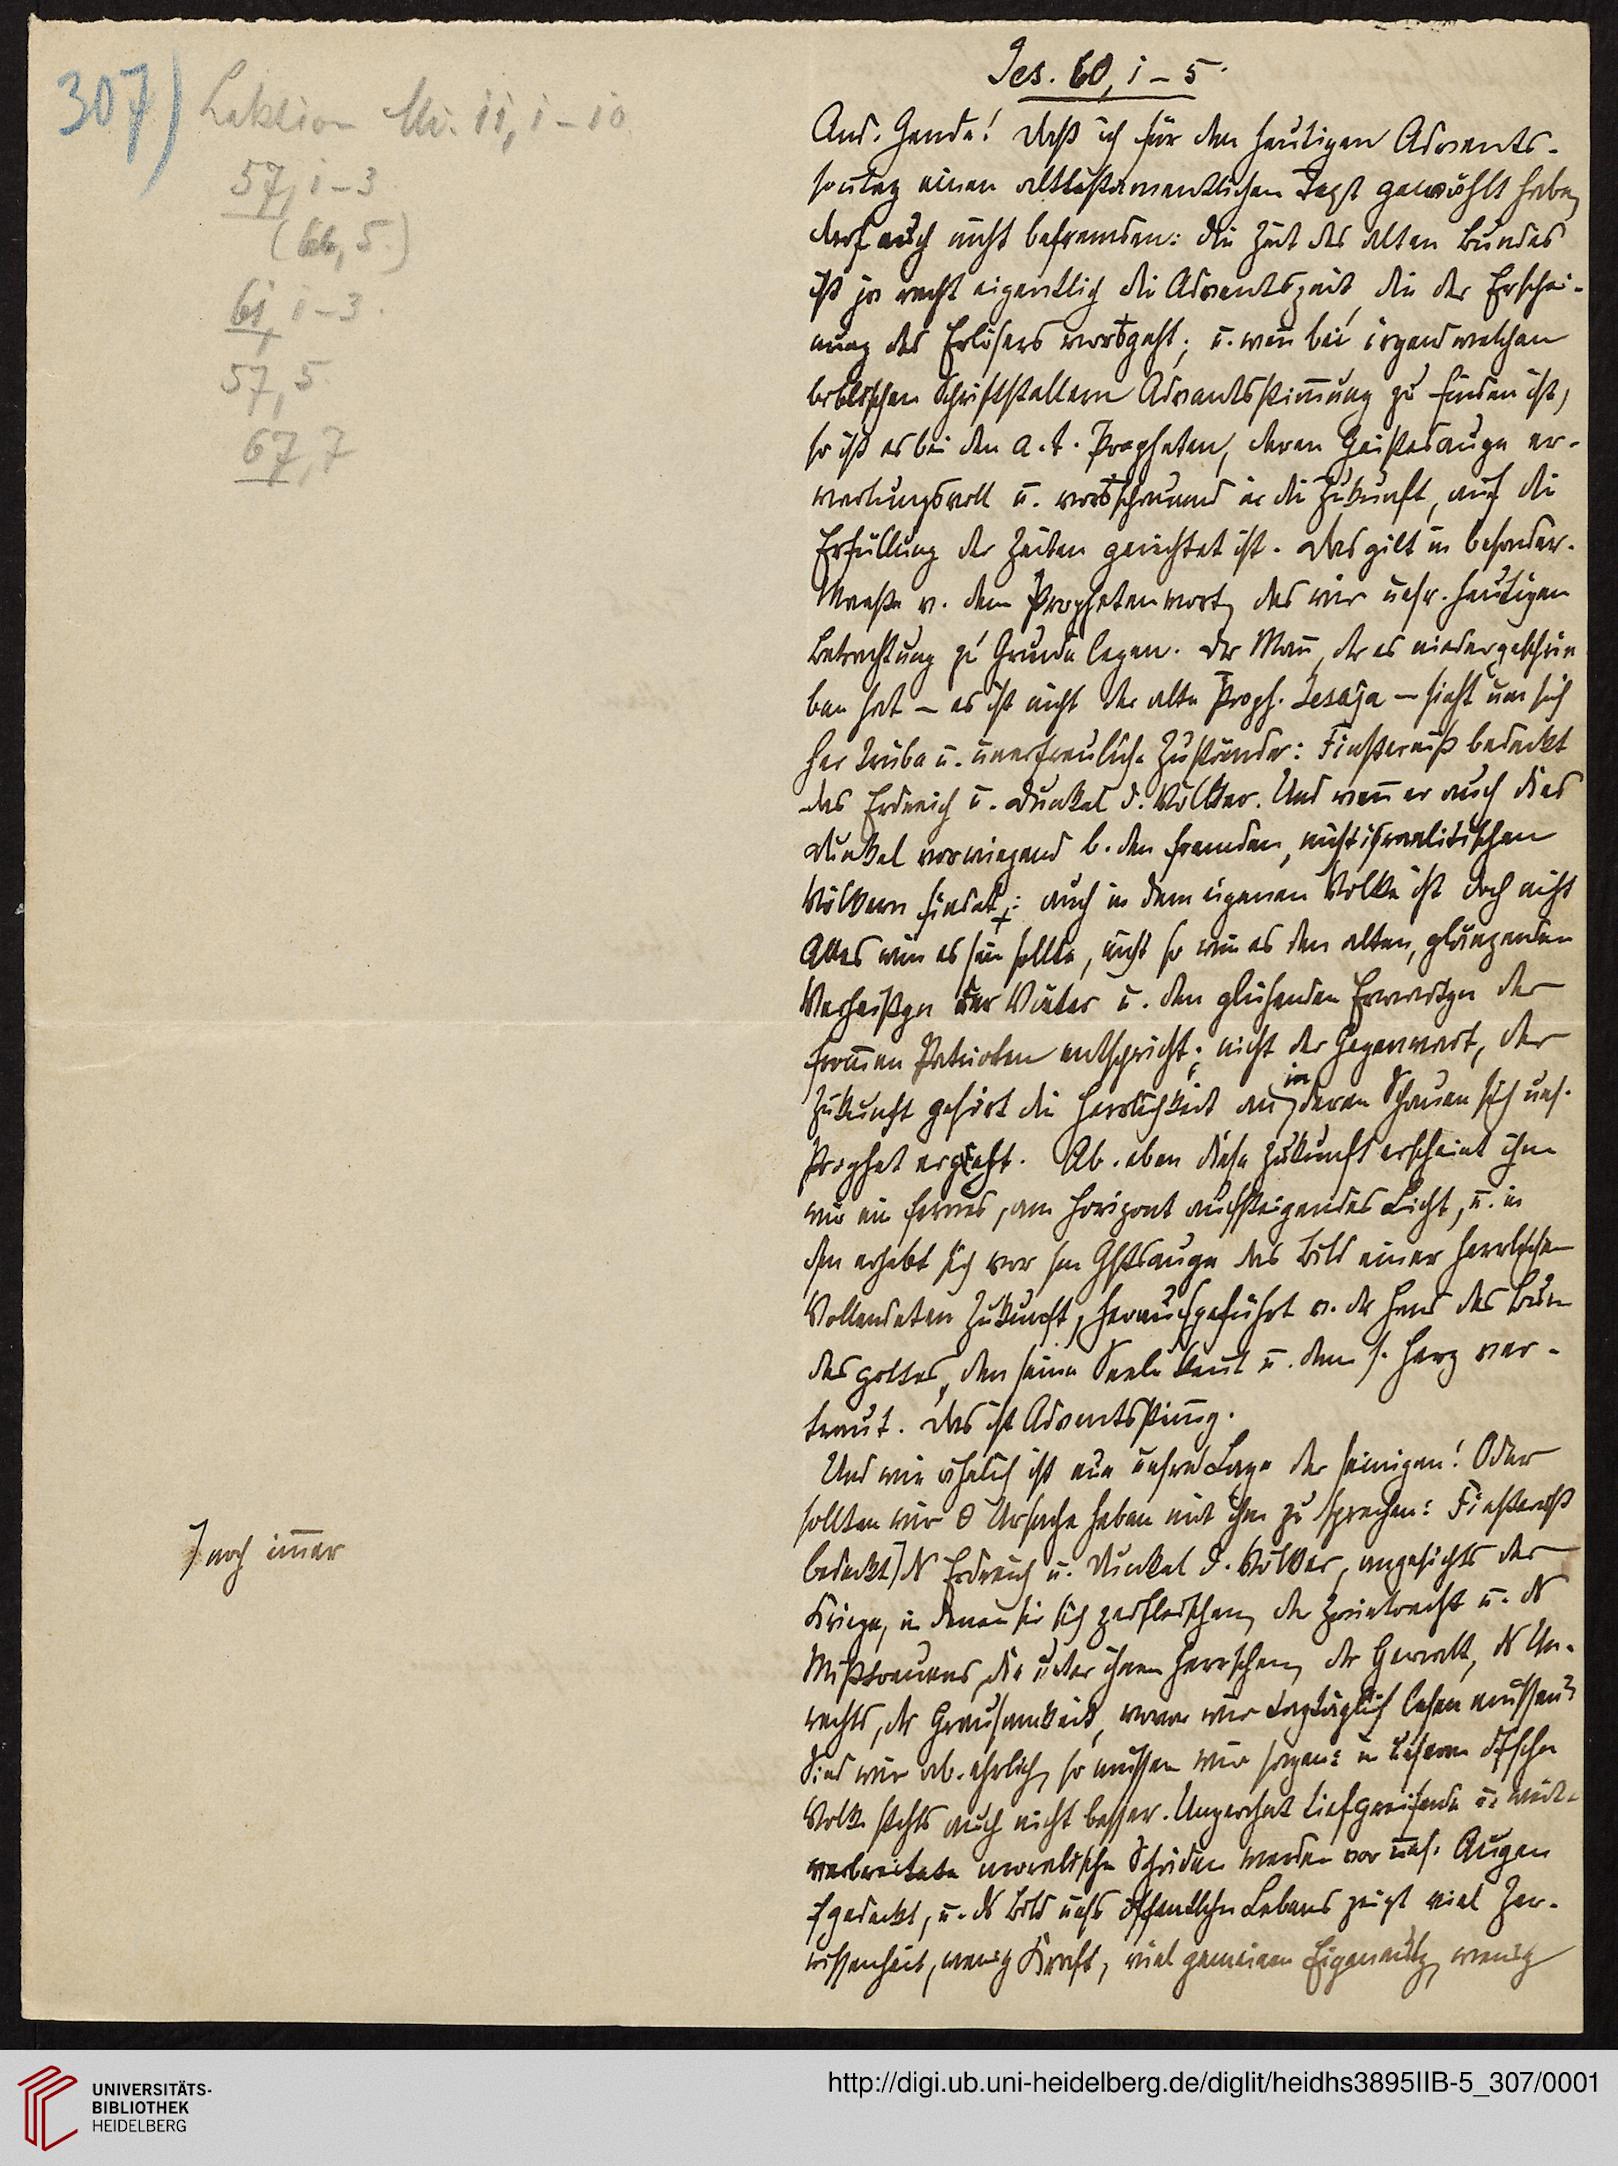 307)
Lektion Mt. 11, 1-10
57, 1-3
(66, 5.)
61, 1-3.
57, 5.
67, 7
Jes. 60, 1-5.
And. Gemde! Daß ich für den heutigen Advents-
sontag einen alttestamentlichen Text gewählt habe,
darf euch nicht befremden: die Zeit des alten Bundes
ist ja recht eigentlich die Adventszeit, die der Erschei-
nung des Erlösers vorausgeht; u. wenn bei irgend welchen
biblischen Schriftstellern Adventsstimmung zu finden ist,
so ist es bei den a. t. Propheten, deren Geistesauge er-
wartungsvoll u. vorausschauend in die Zukunft, auf die
Erfüllung der Zeiten gerichtet ist. Das gilt in besonder.
Maaße v. dem Prophetenwort, das wir unsr. heutigen
Betrachtung zu Grunde legen. Der Mann, der es niedergeschrie
ben hat – es ist nicht der alte Proph. Jesaja – sieht um sich
her trübe u. unerfreuliche Zustände: Finsterniß bedeckt
das Erdreich u. Dunkel d. Völker. Und wenn er auch dies
Dunkel vorwiegend b. den fremden, nichtisraelitischen
Völkern findet: auch in dem eigenen Volke ist doch nicht
Alles wie es sein sollte, nicht so wie es den alten, glänzenden
Verheißgen der Väter u. den glühenden Erwartgen der
frommen Patrioten entspricht; nicht der Gegenwart, der
Zukunft gehört die Herrlichkeit an, in deren Schauen sich uns.
Prophet ergeht. Ab. eben diese Zukunft erscheint ihm
wie ein fernes, am Horizont aufsteigendes Licht, u. in
ihm erhebt sich vor sm Gstsauge das Bild einer herrlichen
Vollendeten Zukunft, heraufgeführt v. der Hand des Bun
des gottes, den seine Seele kennt u. dem s. Herz ver-
traut. Das ist Adventsstimmg.
Und wie ähnlich ist nun unsre Lage der seinigen! Oder
sollten wir 0 Ursache haben mit ihm zu sprechen: Finsterniß
⌉ noch immer
bedeckt ⌉ ds Erdreich u. Dunkel d. Völker, angesichts der
Kriege, in denen sie sich zerfleischen, der Zwietracht u. ds
Mißtrauens, die unter ihnen herrschen, der Gewalt, ds Un-
rechts, der Grausamkeit, wovon wir tagtäglich lesen müssen?
Sind wir ab. ehrlich, so müssen wir sagen: in unserem dtschn
Volk stehts auch nicht besser. Ungeahnt tiefgreifende u. weit-
verbreitete moralische Schäden werden vor uns. Augen
fgedeckt, u. ds Bild unsrs öffentlichn Lebens zeigt viel Zer-
rissenheit, wenig Kraft, viel gemeinen Eigennutz, wenig
UNIVERSITÄTS-
BIBLIOTHEK
HEIDELBERG
http://digi.ub.uni-heidelberg.de/diglit/heidhs3895IIB-5_307/0001